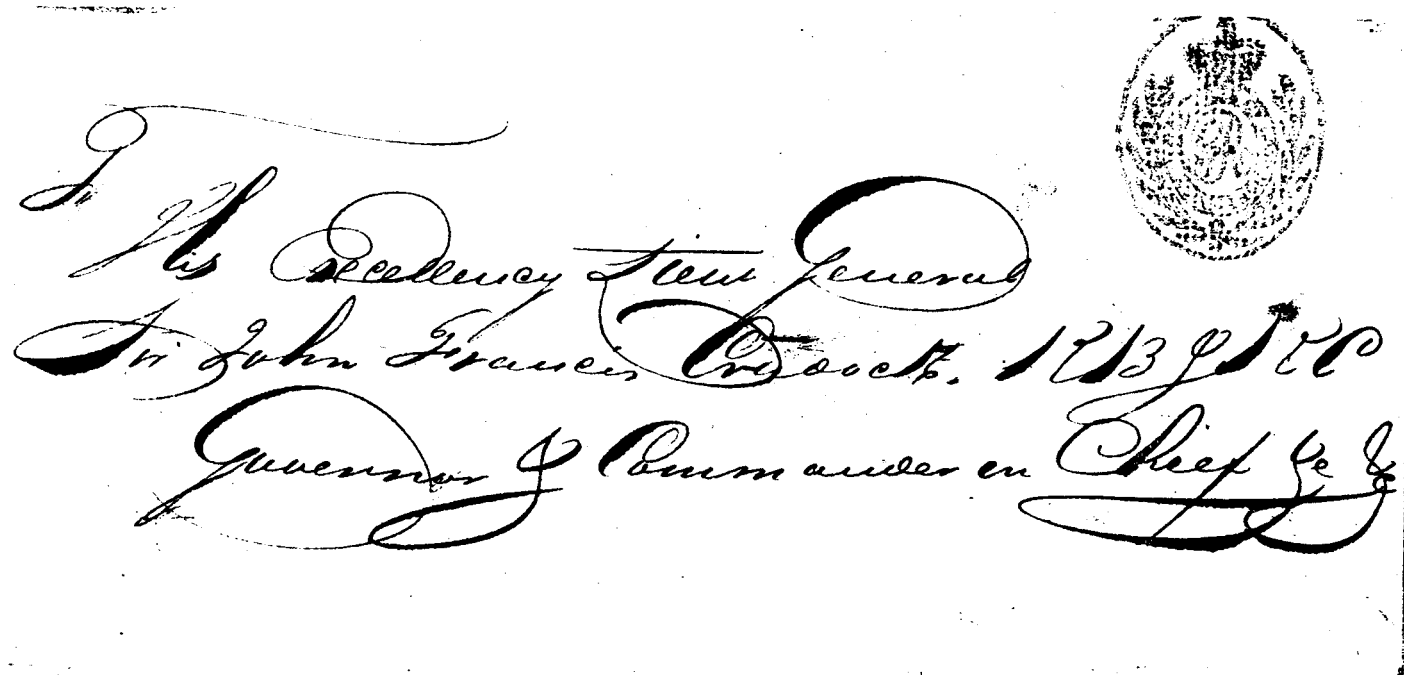 To
His Excellency Lieut General
Sir John Francis Cradock. KB & KC
Governor & Commander in Chief &c &c